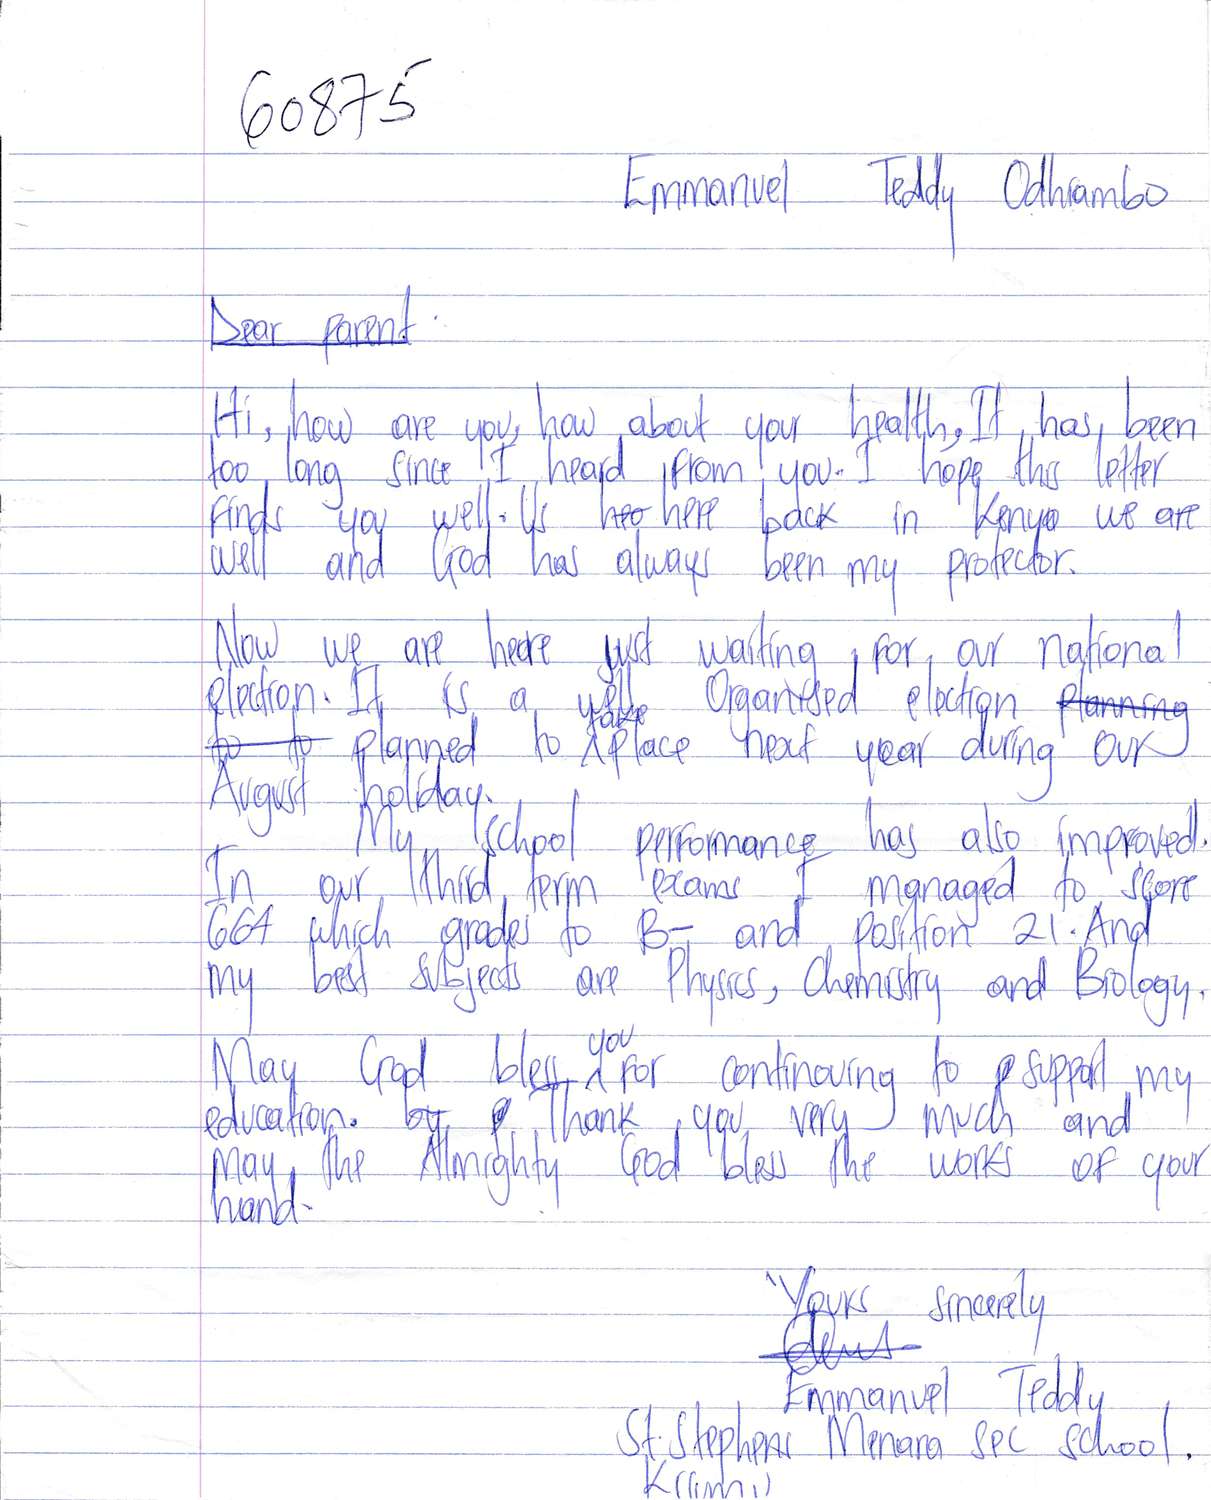 60875
Emmanuel Teddy Odhiambo
Dear parent.
Hi, how are you, how about your health, It has been
too long since I heard from you. I hope this letter
finds you well. Us here back in Kenya we are
well and God has always been my protector.
Now we are heere just waiting for our national
election. It is a well Organised election planning
to to planned to take place next year during our
August holiday.
My school performance has also improved.
In our third term exams I managed to score
664 which grades to B- and position 21. And
my best subjects are Physics, Chemistry and Biology.
May God bless you for continouing to support my
education. by Thank you very much and
may the Almighty God bless the works of your
hand.
Yours sincerely
Emmanuel Teddy
St. Stephens Menara sec school.